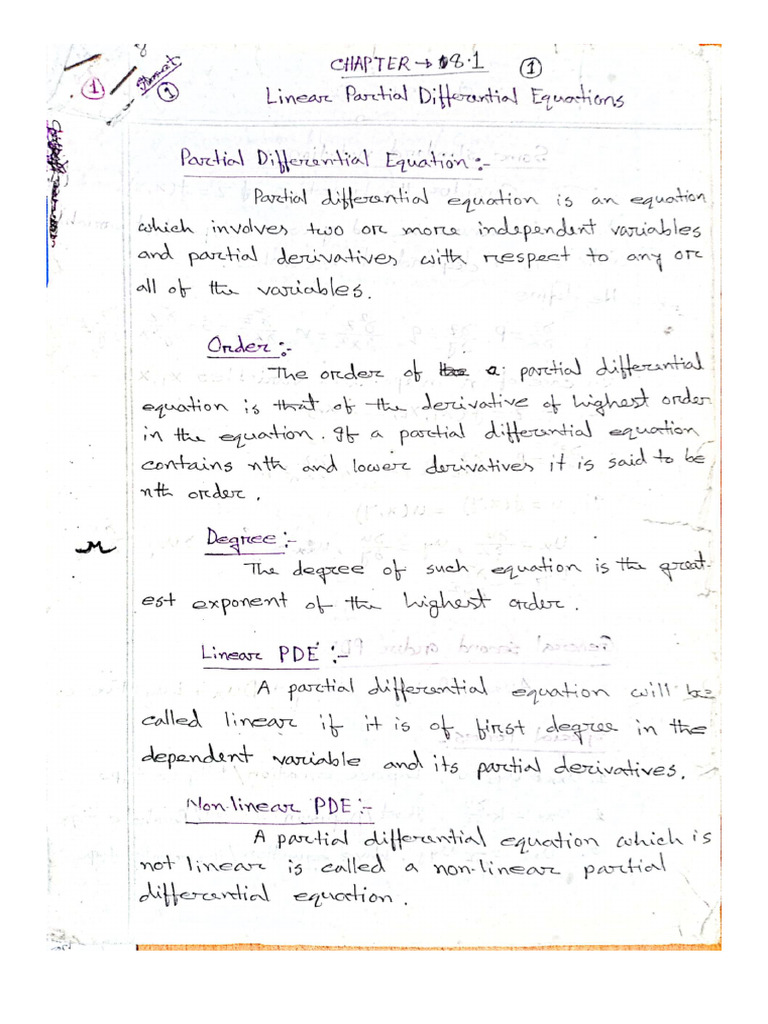 CHAPTER → 8.1 ①
① ①
Linear Partial Differential Equations
Partial Differential Equation :-
Partial differential equation is an equation
which involves two or more independent variables
and partial derivatives with respect to any or
all of the variables.
Order :-
The order of a partial differential
equation is that of the derivative of highest order
in the equation. If a partial differential equation
contains nth and lower derivatives it is said to be
nth order.
Degree :-
The degree of such equation is the great-
est exponent of the highest order.
Linear PDE :-
A partial differential equation will be
called linear if it is of first degree in the
dependent variable and its partial derivatives.
Non-linear PDE :-
A partial differential equation which is
not linear is called a non-linear partial
differential equation.